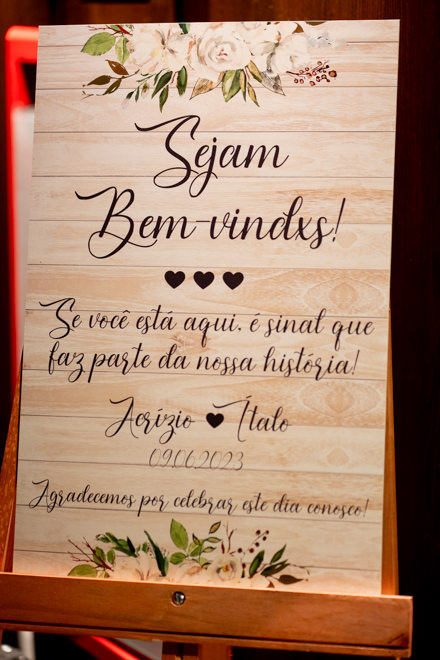 Sejam
Bem-vindxs!
Se você está aqui, é sinal que
faz parte da nossa história!
Acrízio ♥ Ítalo
09.06.2023
Agradecemos por celebrar este dia conosco!